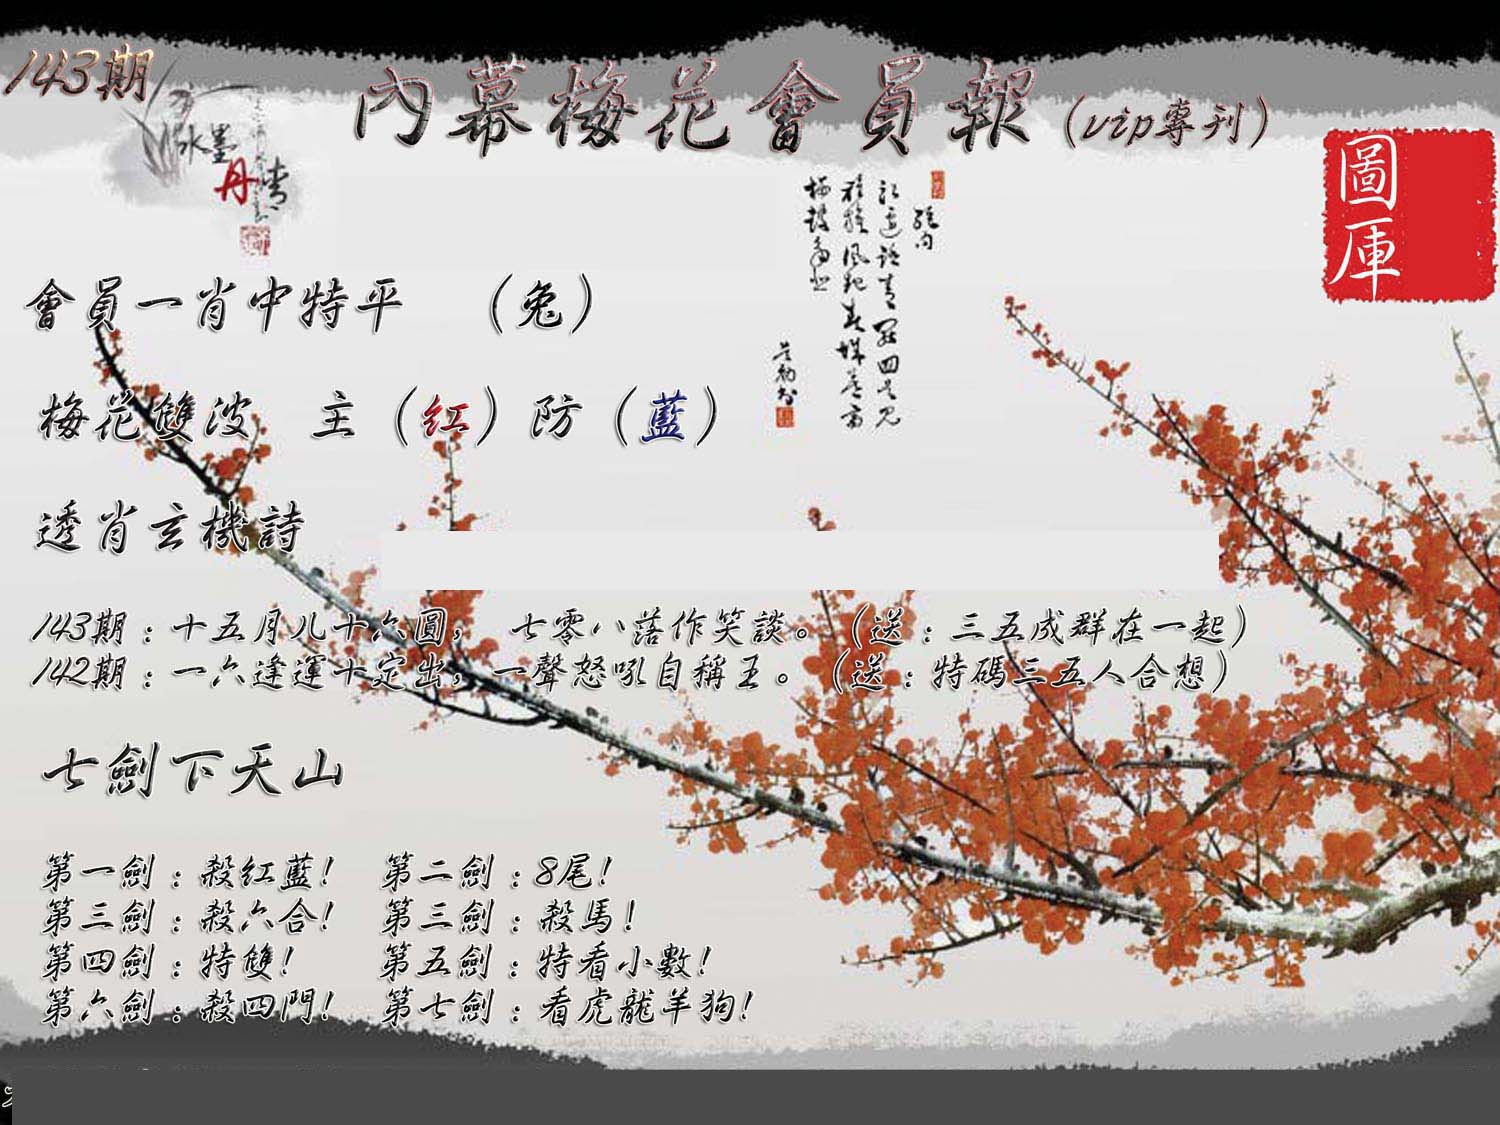 143期
內幕梅花會員報(vip專刊)
水墨
丹青
圖庫
會員一肖中特平 (兔)
梅花雙波 主(紅)防(藍)
透肖玄機詩
143期:十五月儿十六圓, 七零八落作笑談。(送:三五成群在一起)
142期:一六逢運十定出,一聲怒吼自稱王。(送:特碼三五人合想)
七劍下天山
第一劍:殺紅藍! 第二劍:8尾!
第三劍:殺六合! 第三劍:殺馬!
第四劍:特雙! 第五劍:特看小數!
第六劍:殺四門! 第七劍:看虎龍羊狗!